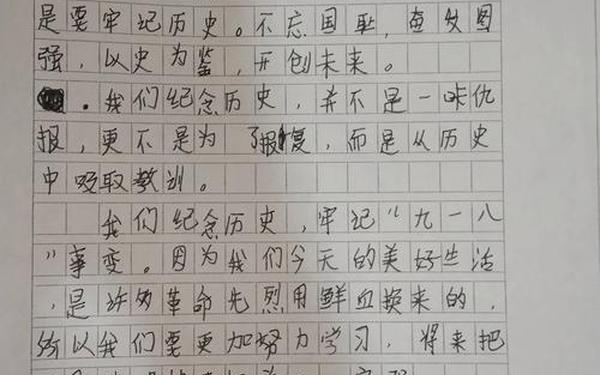 是要牢记历史。不忘国耻，奋发图
强，以史为鉴，开创未来。
。我们纪念历史，并不是一味仇
报，更不是为了报复，而是从历史
中吸取教训。
我们纪念历史，牢记“九一八
”事变。因为我们今天的美好生活
，是许多革命先烈用鲜血换来的，
所以我们要更加努力学习，将来把